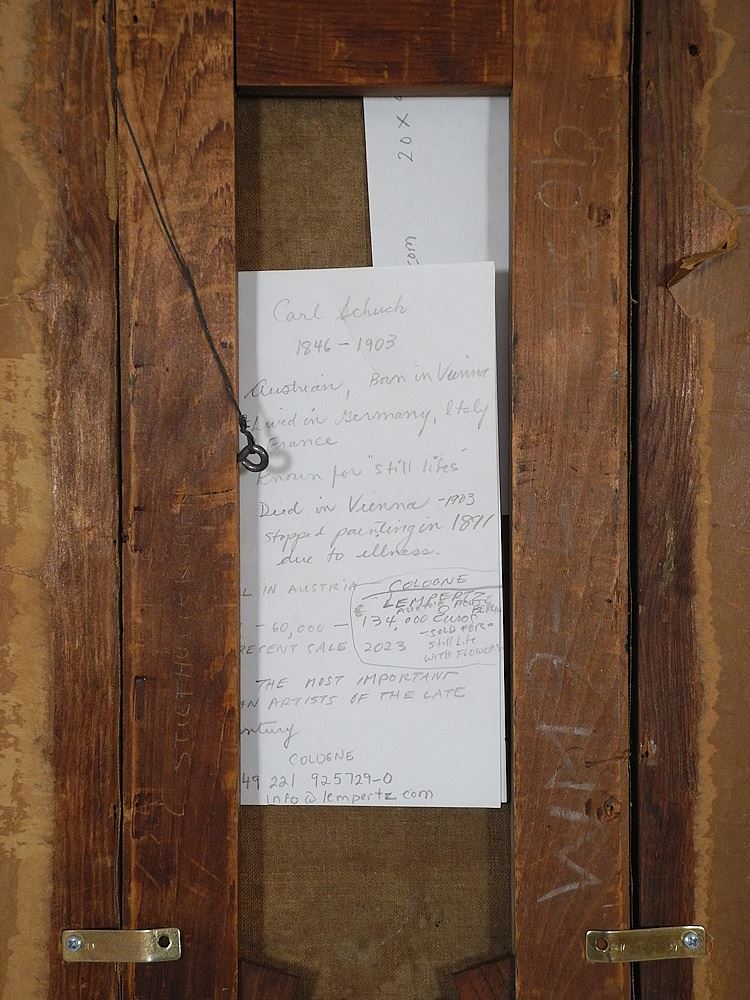 20 X
com
Carl Schuch
1846 - 1903
Austrian, Born in Vienna
Lived in Germany, Italy
France
Known for "still lifes"
Died in Vienna -1903
stopped painting in 1891
due to illness.
L IN AUSTRIA
COLOGNE
LEMPERTZ
AUCTION HOUSE
134,000 Euros
- 60,000 -
-SOLD FOR-
RECENT SALE 2023
Still Life
WITH FLOWERS
THE MOST IMPORTANT
N ARTISTS OF THE LATE
ntury
COLOGNE
49 221 925729-0
Info@lempertz.com